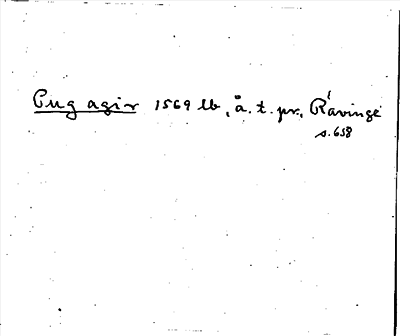 Pug agir 1569 lb, å. t. pr. Rävinge
s. 658